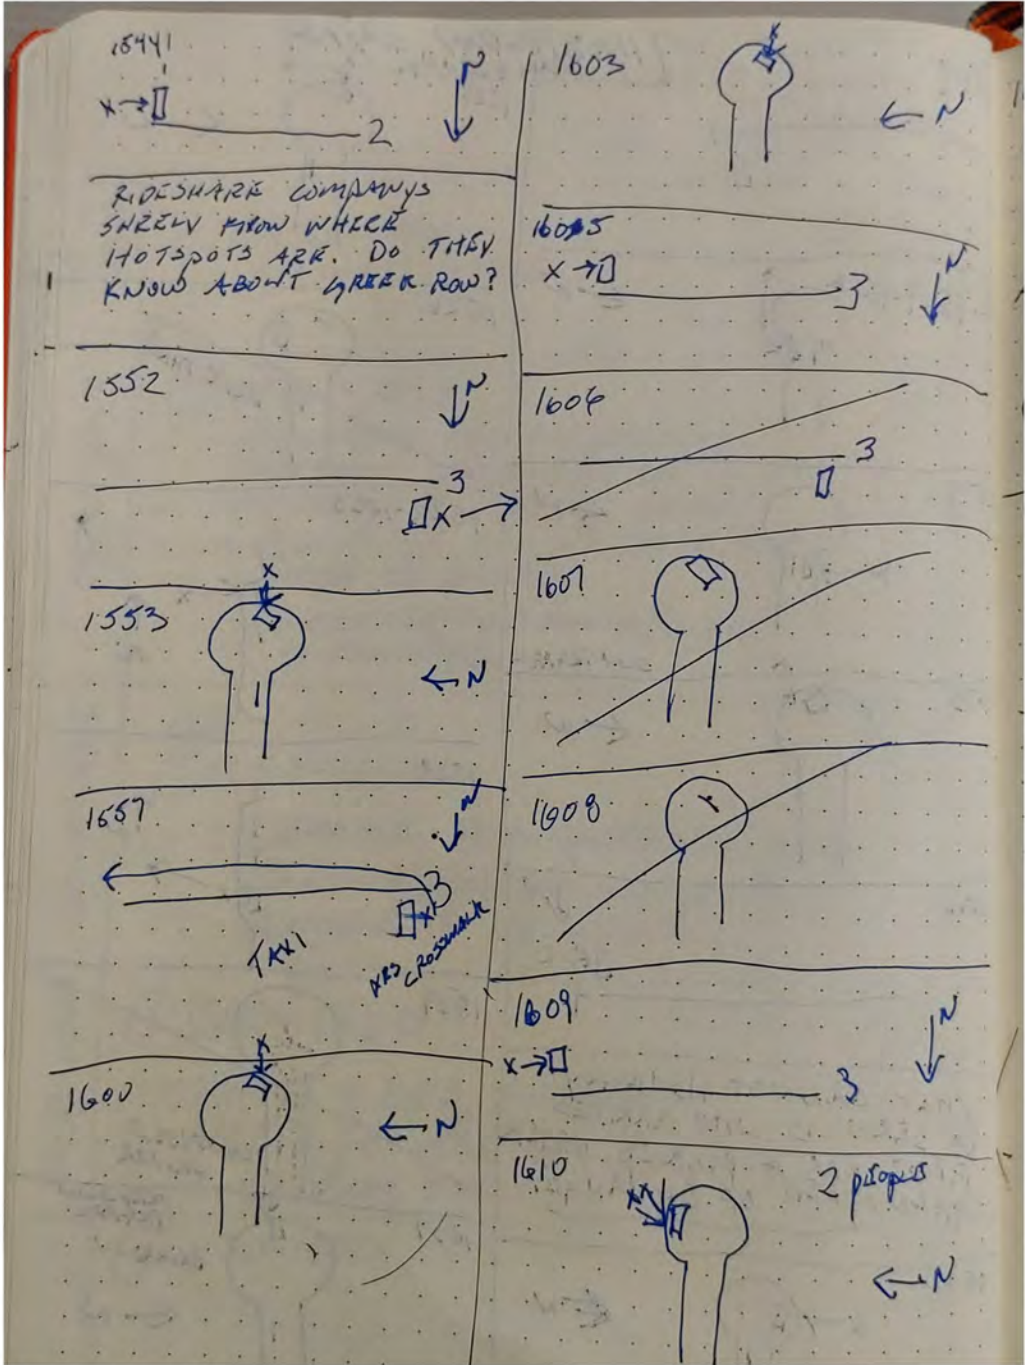 15441
N
X
2
RIDESHARE COMPANYS
SURELY KNOW WHERE
HOTSPOTS ARE. DO THEY
KNOW ABOUT GREEK ROW?
1552
N
3
X
X
1553
N
1557
N
3
X
TAXI
CROSSWALK
X
1600
N
X
1603
N
1605
N
X
3
1606
3
1607
1608
1609
N
X
3
1610
2 PEOPLE
XX
N